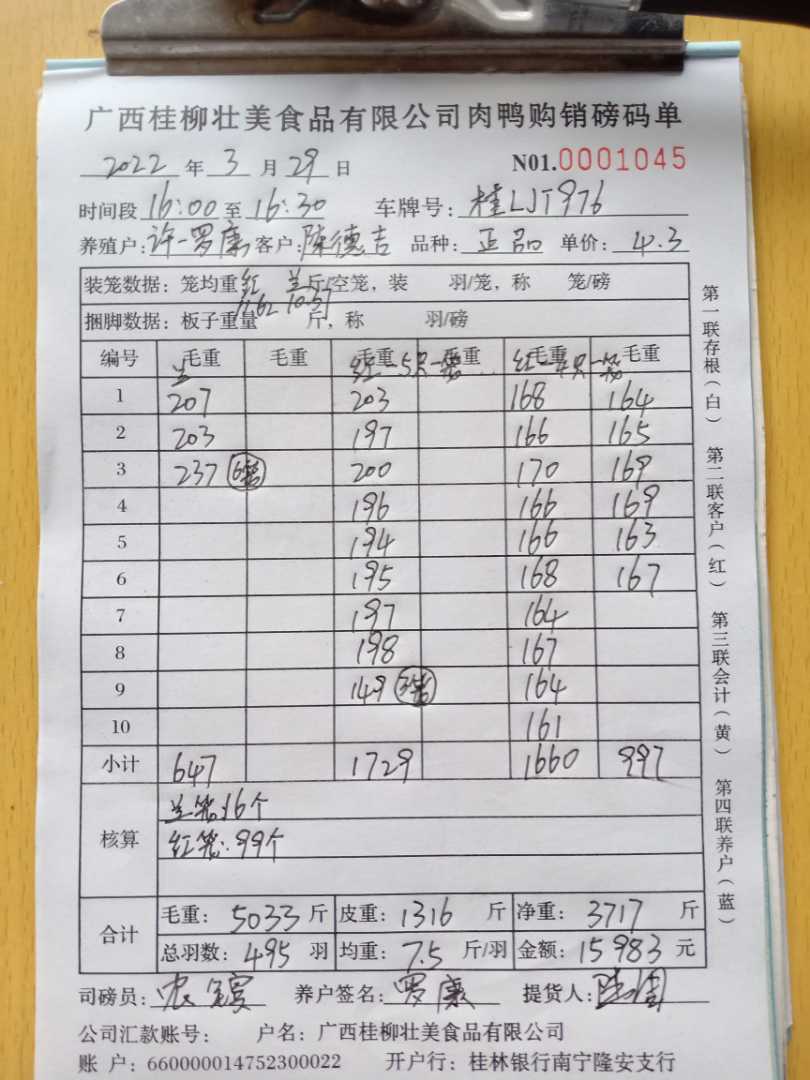 广西桂柳壮美食品有限公司肉鸭购销磅码单
2022 年 3 月 29 日 N01.0001045
时间段 16:00 至 16:30 车牌号: 桂LJT976
养殖户: 许一罗廉 客户: 陈德吉 品种: 正品 单价: 4.3
装笼数据: 笼均重 红 兰 斤/空笼, 装 羽/笼, 称 笼/磅
11.62 10.37
捆脚数据: 板子重量 斤, 称 羽/磅
编号 毛重 毛重 毛重 毛重 毛重 毛重
兰 红-5只一笼 红-4只一笼
1 207 203 168 164
2 203 197 166 165
3 237 6笼 200 170 169
4 196 166 169
5 194 166 163
6 195 168 167
7 197 164
8 198 167
9 149 3笼 164
10 161
小计 647 1729 1660 997
核算 兰笼:16个
红笼:99个
合计 毛重: 5033 斤 皮重: 1316 斤 净重: 3717 斤
总羽数: 495 羽 均重: 7.5 斤/羽 金额: 15983 元
司磅员: 养户签名: 罗廉 提货人:
公司汇款账号: 户名: 广西桂柳壮美食品有限公司
账 户: 660000014752300022 开户行: 桂林银行南宁隆安支行
第一联存根(白) 第二联客户(红) 第三联会计(黄) 第四联养户(蓝)